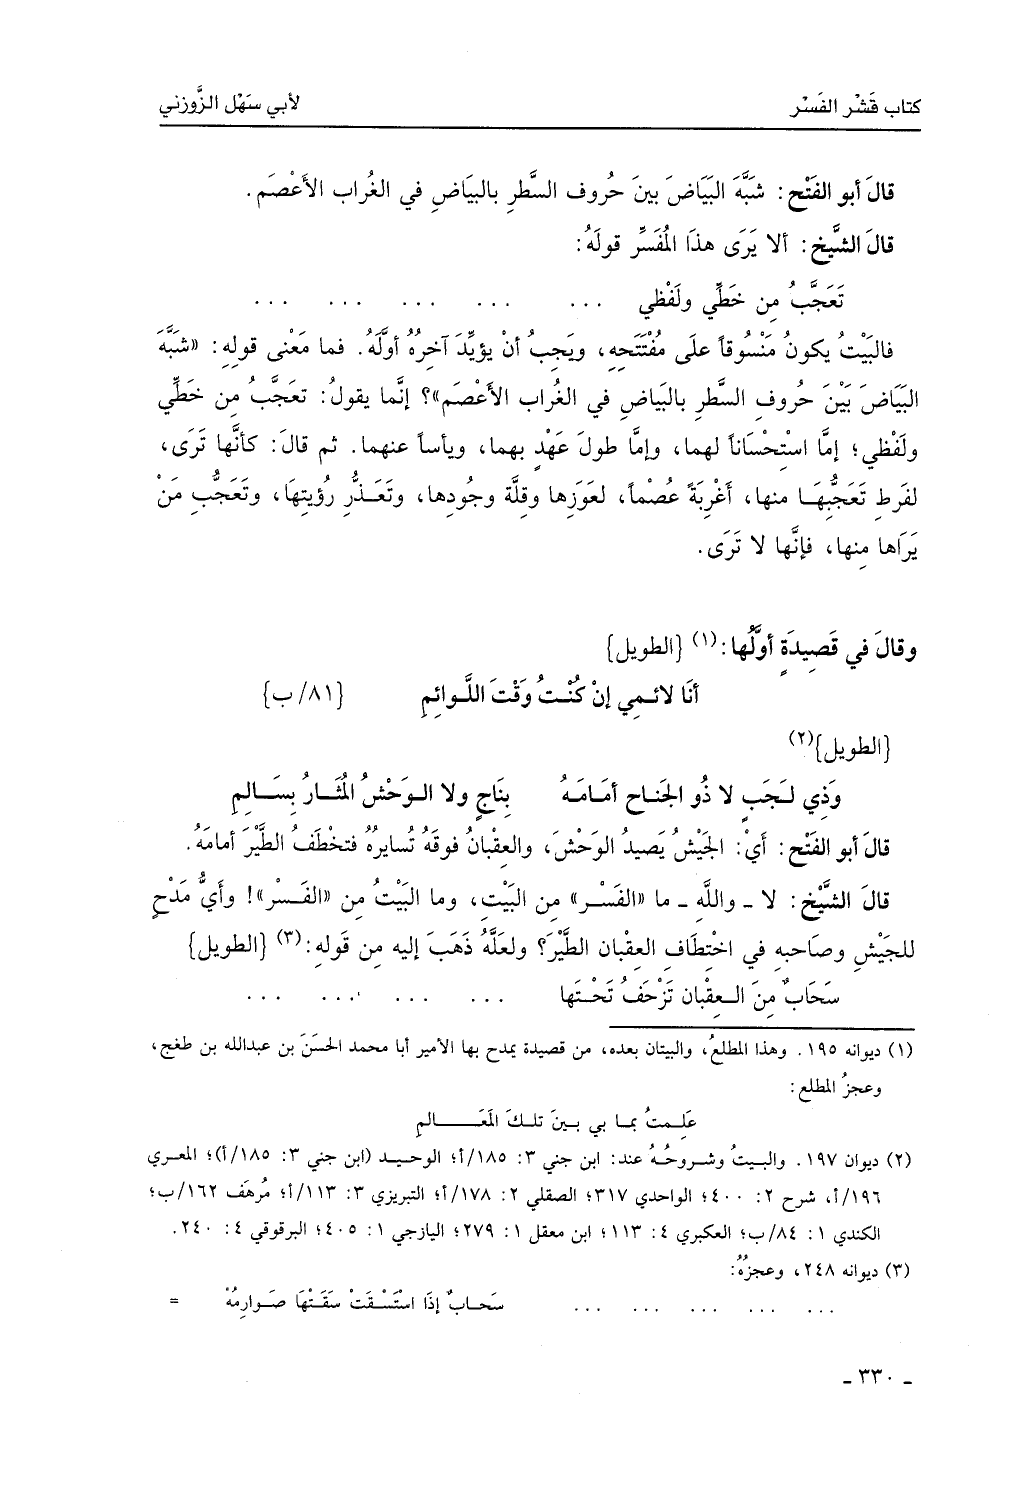 كتاب قَشْر الفَسْر
لأبي سَهْل الزَّوزني
قالَ أبو الفَتْح: شَبَّهَ البَيَاضَ بينَ حُروف السَّطرِ بالبيَاضِ في الغُراب الأَعْصَم.
قالَ الشَّيخ: ألا يَرَى هذَا المُفَسِّر قولَهُ:
تَعَجَّبُ مِن خَطِّي ولَفْظي ... ... ... ... ...
فالبَيْتُ يكونُ مَنْسُوقاً علَى مُفْتَتَحِهِ، ويَجِبُ أنْ يؤيِّدَ آخِرُهُ أولَهُ. فما مَعْنى قولِهِ: «شبَّهَ
البَيَاضَ بَيْنَ حُروفِ السَّطرِ بالبَياضِ في الغُراب الأَعْصَم»؟ إنَّما يقولُ: تعَجَّبُ مِن خَطِّي
ولَفْظي؛ إمَّا اسْتِحْسَاناً لهما، وإمَّا طولَ عَهْدٍ بهما، ويأساً عنهما. ثم قالَ: كأنَّها تَرَى،
لفَرطِ تَعَجُّبِهَا منها، أَغْرِبَةً عُصْماً، لعَوَزِها وقِلَّة وجُودِها، وتَعَذُّرِ رُؤيتِهَا، وتَعَجُّبِ مَنْ
يَرَاها مِنها، فإنَّها لا تَرَى.
وقالَ في قَصِيدَةٍ أوَّلُها: (١) {الطويل}
أنَا لائمِي إنْ كُنْتُ وَقْتَ اللَّوائِمِ {٨١/ ب}
{الطويل}(٢)
وَذِي لَجَبٍ لا ذُو الجَناحِ أمَامَهُ بِنَاجٍ ولا الوَحْشُ المُثَارُ بسَالِمِ
قالَ أبو الفَتْح: أَيْ: الجَيْشُ يَصيدُ الوَحْشَ، والعِقْبانُ فوقَهُ تُسايرُهُ فتخْطَفُ الطَّيْرَ أمامَهُ.
قالَ الشَّيْخ: لا ـ واللَّهِ ـ ما «الفَسْر» مِن البَيْتِ، وما البَيْتُ مِن «الفَسْر»! وأيُّ مَدْحٍ
للجَيْشِ وصَاحبِه في اخْتِطَافِ العِقْبان الطَّيْرَ؟ ولعَلَّهُ ذَهَبَ إليه مِن قَولِه: (٣) {الطويل}
سَحَابٌ مِنَ العِقْبان تَزْحَفُ تَحْتَها ... ... ... ...
(١) ديوانه ١٩٥. وهذا المطلعُ، والبيتان بعده، من قصيدة يمدح بها الأمير أبا محمد الحسَنَ بن عبدالله بن طغج،
وعجزُ المطلع:
عَلِمتُ بما بي بينَ تلكَ المَعَالمِ
(٢) ديوان ١٩٧. والبيتُ وشروحُهُ عند: ابن جني ٣: ١٨٥/أ؛ الوحيد (ابن جني ٣: ١٨٥/أ)؛ المعري
١٩٦/أ، شرح ٢: ٤٠٠؛ الواحدي ٣١٧؛ الصقلي ٢: ١٧٨/أ؛ التبريزي ٣: ١١٣/أ؛ مُرهَف ١٦٢/ب؛
الكندي ١: ٨٤/ب؛ العكبري ٤: ١١٣؛ ابن معقل ١: ٢٧٩؛ اليازجي ١: ٤٠٥؛ البرقوقي ٤: ٢٤٠.
(٣) ديوانه ٢٤٨، وعجزُهُ:
... ... ... ... ... سَحابٌ إذَا اسْتَسْقَتْ سَقَتْهَا صَوارِمُهْ =
ـ ٣٣٠ ـ